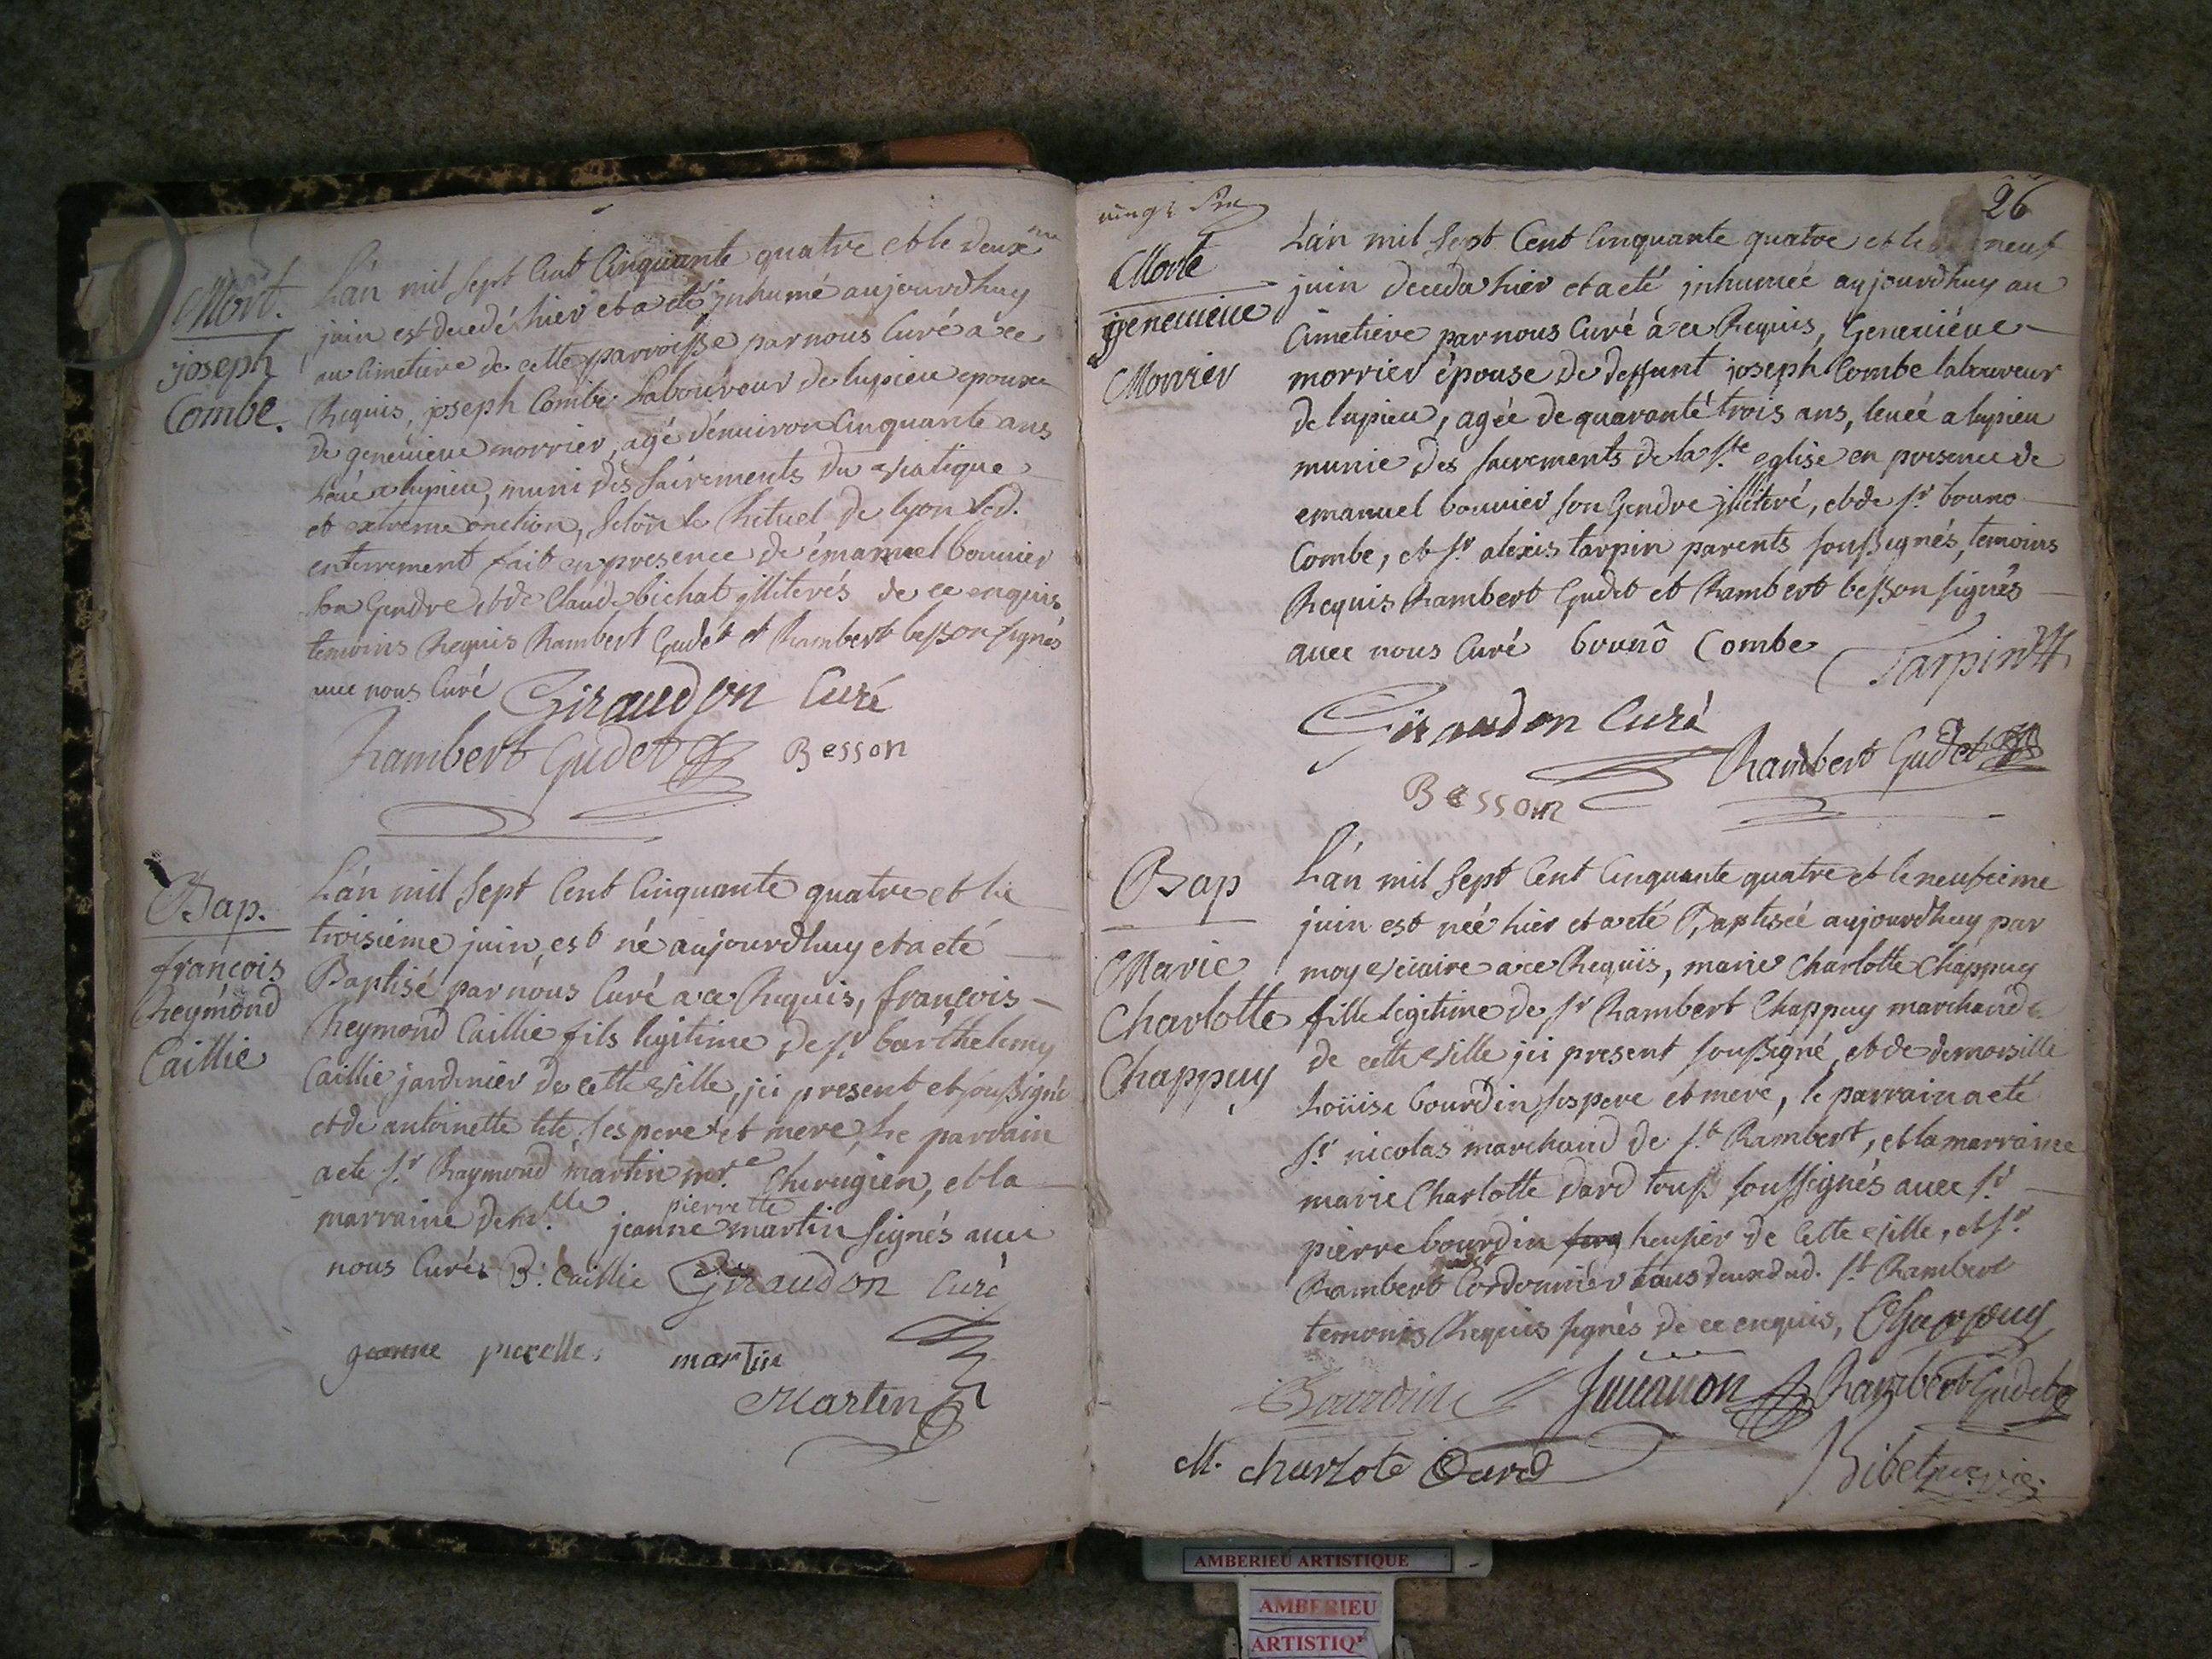 Mort.
joseph
Combe.
L'an mil sept Cent Cinquante quatre et le deuxe
juin est decedé hier et a eté jnhumé aujourdhuy
au Cimetiere de cette parroisse par nous Curé a ce
Requis, joseph Combe Laboureur de lupieu epoux
de genevieve morrier, agé d'enuiron Cinquante ans
Leué a lupieu, muni des sacrements du viatique
et extreme onction, selon le Rituel de lyon led.
enterrement fait en presence de émanuel bouuier
son Gendre et de Claude bichat jlliterés de ce enquis
temoins Requis Rambert Gudet et Rambert besson signés
auec nous Curé Giraudon Curé
Rambert Gudet Besson
Bap.
françois
Reymond
Caillie
L'an mil sept Cent Cinquante quatre et le
troisiéme juin, est né aujourdhuy et a eté
Baptisé par nous Curé a ce Requis, françois
Reymond Caillie fils legitime de sr barthelemy
Caillie jardinier de cette ville, jci present et soussigné
et de antoinette tete, ses pere et mere, Le parrain
a ete sr Raymond martin mre Chirugien, et la
pierrette
marraine delle jeanne martin signés auec
nous Curé B. Caillie Giraudon Curé
geanne pierelle martin
Martin
26
Morte
genevieve
Morrier
L'an mil sept Cent Cinquante quatre et le neuf
juin deceda hier et a eté jnhumée aujourdhuy au
Cimetiere par nous Curé á ce Requis, Geneviéve
morrier épouse de deffunt joseph Combe laboureur
de lupieu, agée de quarante trois ans, leuée a lupieu
munie des sacrements de la ste eglise en presence de
emanuel bouuier son Gendre jlliteré, et de sr bruno
Combe, et sr aléxis tarpin parents soussignés, temoins
Requis Rambert Gudet et Rambert besson signés
auec nous Curé brunô Combe Tarpin
Giraudon Curé
Besson Rambert Gudet
Bap
Marie
Charlotte
Chappuy
L'an mil sept Cent Cinquante quatre et le neufieme
juin est née hier et a eté Baptisée aujourdhuy par
moy viciaire a ce Requis, marie Charlotte Chappuy
fille legitime de sr Rambert Chappuy marchand
de cette ville jci present soussigné, et de demoiselle
Loüise bourdin ses pere et mere, le parrain a eté
sr nicolas marchand de st Rambert, et la marraine
marie Charlotte dard touss soussignés auec sr
pierre bourdin heusier de Cette ville, et sr
Rambert Cordonnier tous deux dud. st Rambert
temoins Requis signés de ce enquis, Chappuy
Bourdin Juuanon Rambert Gudet
M. charlote Dard Ribet vic.
AMBERIEU ARTISTIQUE
AMBERIEU
ARTISTIQ